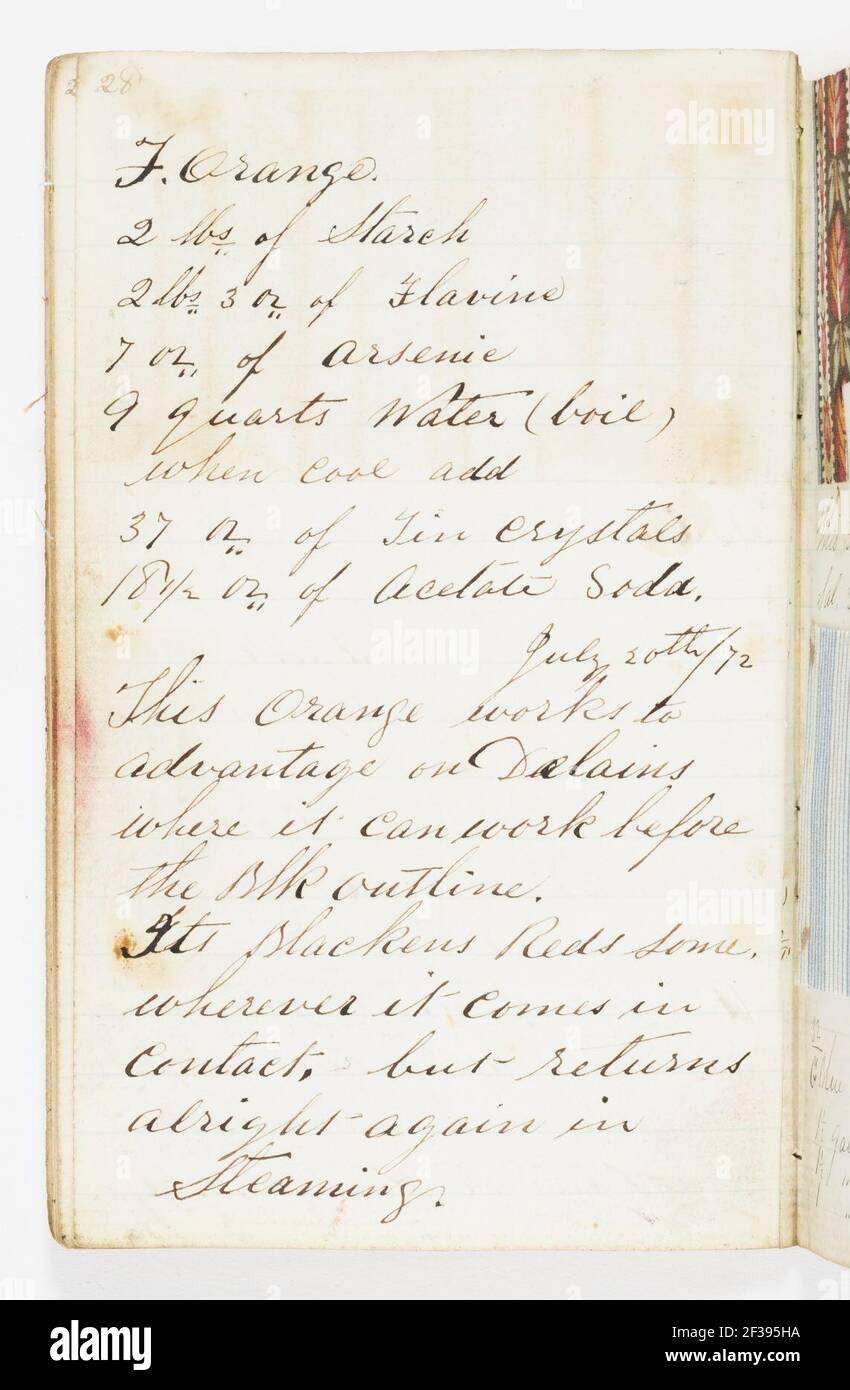 2 28
F. Orange.
2 lbs of Starch
2 lbs 3 oz of Flavine
7 oz of Arsenic
9 quarts Water (boil)
when cool add
37 oz of Tin Crystals
18 1/2 oz of Acetate Soda.
July 20th/72
This Orange works to
advantage on Delains
where it can work before
the Blk outline.
Its Blackens Reds some,
wherever it comes in
contact, but returns
alright again in
Steaming.
alamy
Image ID: 2F395HA
www.alamy.com